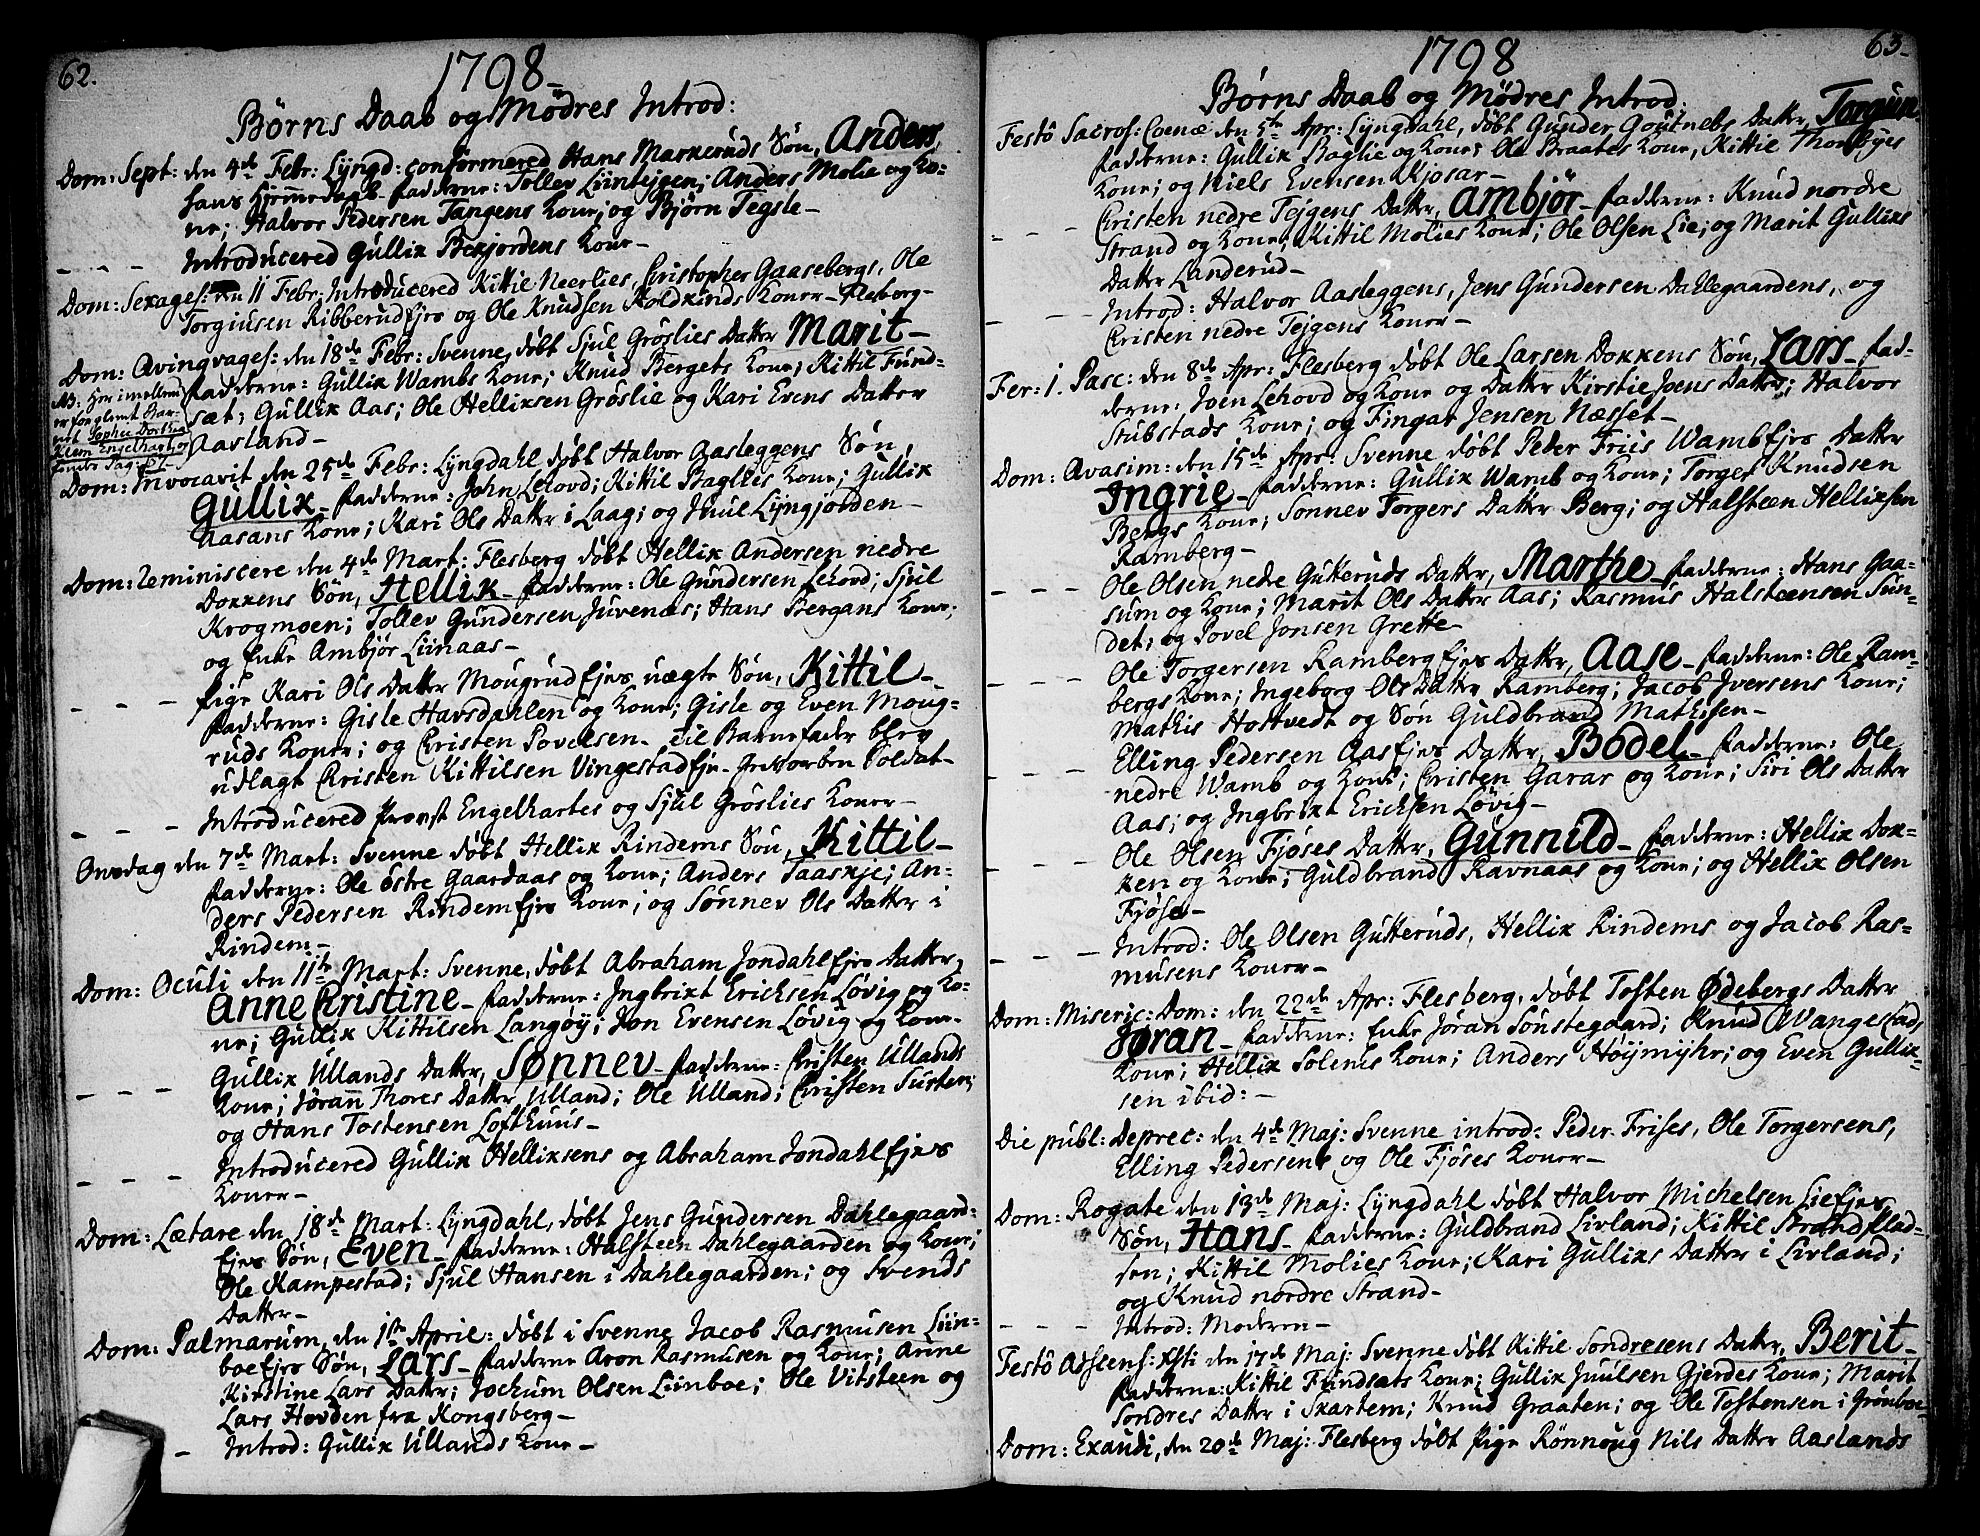 62.
1798
Børns Daab og Mødres Introd:
Dom: Sept: den 4de Febr: Lyngd: confermered Hans Markeruds Søn, Anders,
hans Hjemmedaab. Fadderne: Tollev Liintejgen; Anders Molie og Ko-
ne; Halvor Pedersen Tangens Kone; og Bjørn Tegsle
- - - Introducered Gullik Bekjordens Kone
Dom: Sexages: den 11 Febr: Introducered Kittil Neerlies, Christopher Gaasebergs, Ole
Torgiusen Ribberudejes og Ole Knudsen Koldkinds Koner - Flesberg -
Dom: Qvinqvages: den 18de Febr: Svenne, døbt Sjul Grøslies Datter Marit
Fadderne: Gullik Wambs Kone; Knud Bergets Kone; Kittil Fund-
sæt; Gullik Aas; Ole Helliksen Grøslie og Kari Evens Datter
Aasland
NB: Her imellem
er forglemt Bar-
net Sophie Dorthea
Klem Engelhart, or
findes Pag: 67
Dom: Invocavit den 25de Febr: Lyngdahl døbt Halvor Aasleggens Søn,
Gullik - Fadderne: John Lehovd; Kittil Baglies Kone; Gullik
Aasans Kone; Kari Ols Datter i Laag; og Juul Lyngjorden
Dom: Reminiscere den 4de Mart: Flesberg døbt Hellik Andersen nedre
Dokkens Søn, Hellik - Fadderne: Ole Gundersen Lehovd; Sjul
Krogmoen; Tollev Gundersen Juvenæs; Hans Bergans Kone;
og Enke Ambjør Liinaas
- - - Pige Kari Ols Datter Mougrudejes uægte Søn, Kittil
Fadderne: Gisle Havsdahlen og Kone; Gisle og Even Moug-
ruds Koner; og Christen Povelsen - Til Barnefader blev
udlagt Christen Kittilsen Vingestadeje - Geworben Soldat
- - - Introducered Provst Engelhartes og Sjul Grøslies Koner
Onsdag den 7de Mart: Svenne døbt Hellik Rindems Søn, Kittil
Fadderne: Ole østre Gaardaas og Kone; Anders Taaskje; An-
ders Pedersen Rindemejes Kone; og Sønnev Ols Datter i
Rindem
Dom: Oculi den 11te Mart: Svenne, døbt Abraham Jondahlejes Datter,
Anne Cristine - Fadderne: Ingbrikt Ericksen Løvig og Ko-
ne; Gullik Kittilsen Langøy; Jon Evensen Løvig og Kone
- - - Gullik Ullands Datter, Sønnev - Fadderne: Christen Ullands
Kone; Jørann Thores Datter Ulland; Ole Ulland; Christen Surten;
og Hans Tostensen Lofthuus
- - - Introducered Gullik Helliksens og Abraham Jondahlejes
Koner
Dom: Lætare den 18de Mart: Lyngdahl, døbt Jens Gundersen Dahlegaard-
ejes Søn, Even - Fadderne: Halsteen Dahlegaarden og Kone;
Ole Kampestad; Sjul Hansen i Dahlegaarden; og Svends
Datter
Dom: Palmarum, den 1ste April: døbt i Svenne Jacob Rasmusen Liin-
boeejes Søn, Lars - Fadderne Aron Rasmusen og Kone; Anne
Kirstine Lars Datter; Jochum Olsen Liinboe; Ole Vitsteen og
Lars Hovden fra Kongsberg
- Introd: Gullik Ullands Kone
63.
1798
Børns Daab og Mødres Introd:
Festô Sacros: Coenæ den 5te Apr: Lyngdahl, døbt Gunder Goutnebs Datter, Torgun
Fadderne: Gullik Baglie og Kone; Ole Braates Kone, Kittil Thorsbyes
Kone; og Niels Evensen Kjosar
- - - Cristen nedre Tejgens Datter, Ambjør - Fadderne: Knud nordre
Strand og Kone; Kittil Molies Kone; Ole Olsen Lie; og Marit Gulliks
Datter Landerud
- - - Introd: Halvor Aasleggens, Jens Gundersen Dahlegaardens, og
Cristen nedre Tejgens Koner
Fer: 1. Pasc: den 8de Apr: Flesberg døbt Ole Larsen Dokkens Søn, Lars - Fad-
derne: Joen Lehovd og Kone og Datter Kirstie Joens Datter; Halvor
Stubstads Kone; og Fingar Jensen Næsset
Dom: Qvasim: den 15de Apr: Svenne døbt Peder Friis Wambejes Datter
Ingrie - Fadderne: Gullik Wamb og Kone; Torger Knudsen
Bergs Kone; Sønnev Torgers Datter Berg; og Halsteen Helliksen
Ramberg
- - - Ole Olsen nedre Gutteruds Datter, Marthe - Fadderne: Hans Gaa-
sum og Kone; Marit Ols Datter Aas; Rasmus Halsteensen Sun-
det; og Povel Jonsen Grette
- - - Ole Torgersen Rambergejes Datter, Aase - Fadderne: Ole Ram-
bergs Kone; Ingeborg Ols Datter Ramberg; Jacob Iversens Kone;
Mathis Hostvedt og Søn Guldbrand Mathisen
- - - Elling Pedersen Aasejes Datter, Bodel - Fadderne: Ole
nedre Wamb og Kone; Cristen Garar og Kone; Siri Ols Datter
Aas; og Ingbrikt Ericksen Løvig
- - - Ole Olsen Fjøses Datter, Gunnild - Fadderne: Hellik Dok-
ken og Kone; Guldbrand Ravnaas og Kone; og Hellik Olsen
Fjøse
- - - Introd: Ole Olsen Gutteruds, Hellik Rindems og Jacob Ras-
musens Koner
Dom: Miseric: Dom: den 22de Apr: Flesberg, døbt Tosten Ødebergs Datter
Jøran - Fadderne: Enke Jøran Sønstegaard; Knud Wangestads
Kone; Hellik Solems Kone; Anders Høymyhr; og Even Gullik-
sen ibid:
Die publ: Deprec: den 4de Maj: Svenne introd: Peder Frises, Ole Torgersens,
Elling Pedersens og Ole Fjøses Koner
Dom: Rogate den 13de Maj: Lyngdahl døbt Halvor Michelsen Lieejes
Søn, Hans - Fadderne: Guldbrand Livland; Kittil Strand Klad-
sen; Kittil Molies Kone; Kari Gulliks Datter i Livland;
og Knud nordre Strand
- - - Introd: Moderen
Festô Adscens: Xsti den 17de Maj: Svenne døbt Kittil Sondresens Datter, Berit
Fadderne: Kittil Fundsæts Kone; Gullik Juulsen Gjerdes Kone; Marit
Sondres Datter i Skartem; Knud Graaten; og Ole Tostensen i Grønboe
Dom: Exaudi, den 20de Maj: Flesberg døbt Pige Rønnoug Nils Datter Aaslands